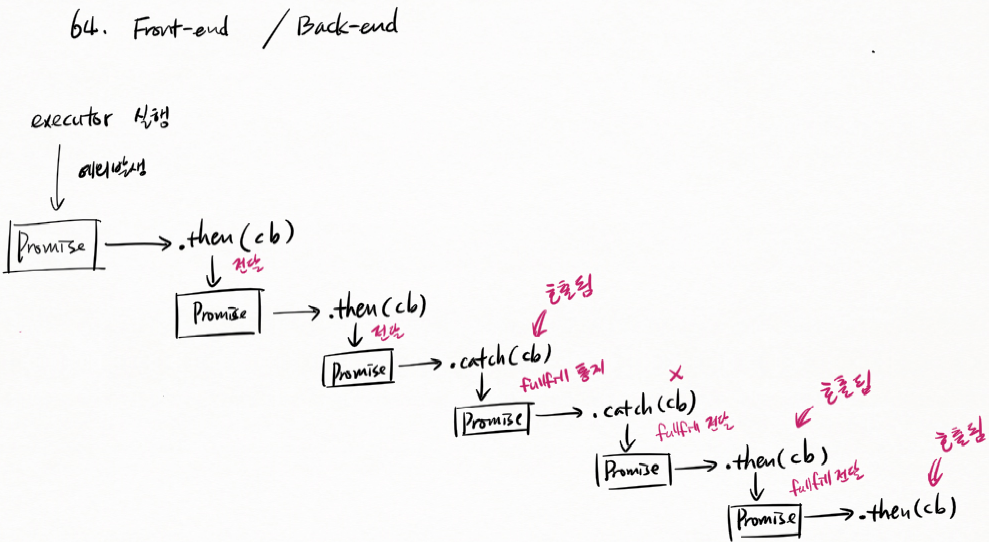 64. Front-end / Back-end
executor 실행
에러발생
Promise
.then(cb)
전달
Promise
.then(cb)
전달
호출됨
Promise
.catch(cb)
fullfill 통지
Promise
×
.catch(cb)
fullfill 전달
호출됨
Promise
.then(cb)
fullfill 전달
호출됨
Promise
.then(cb)